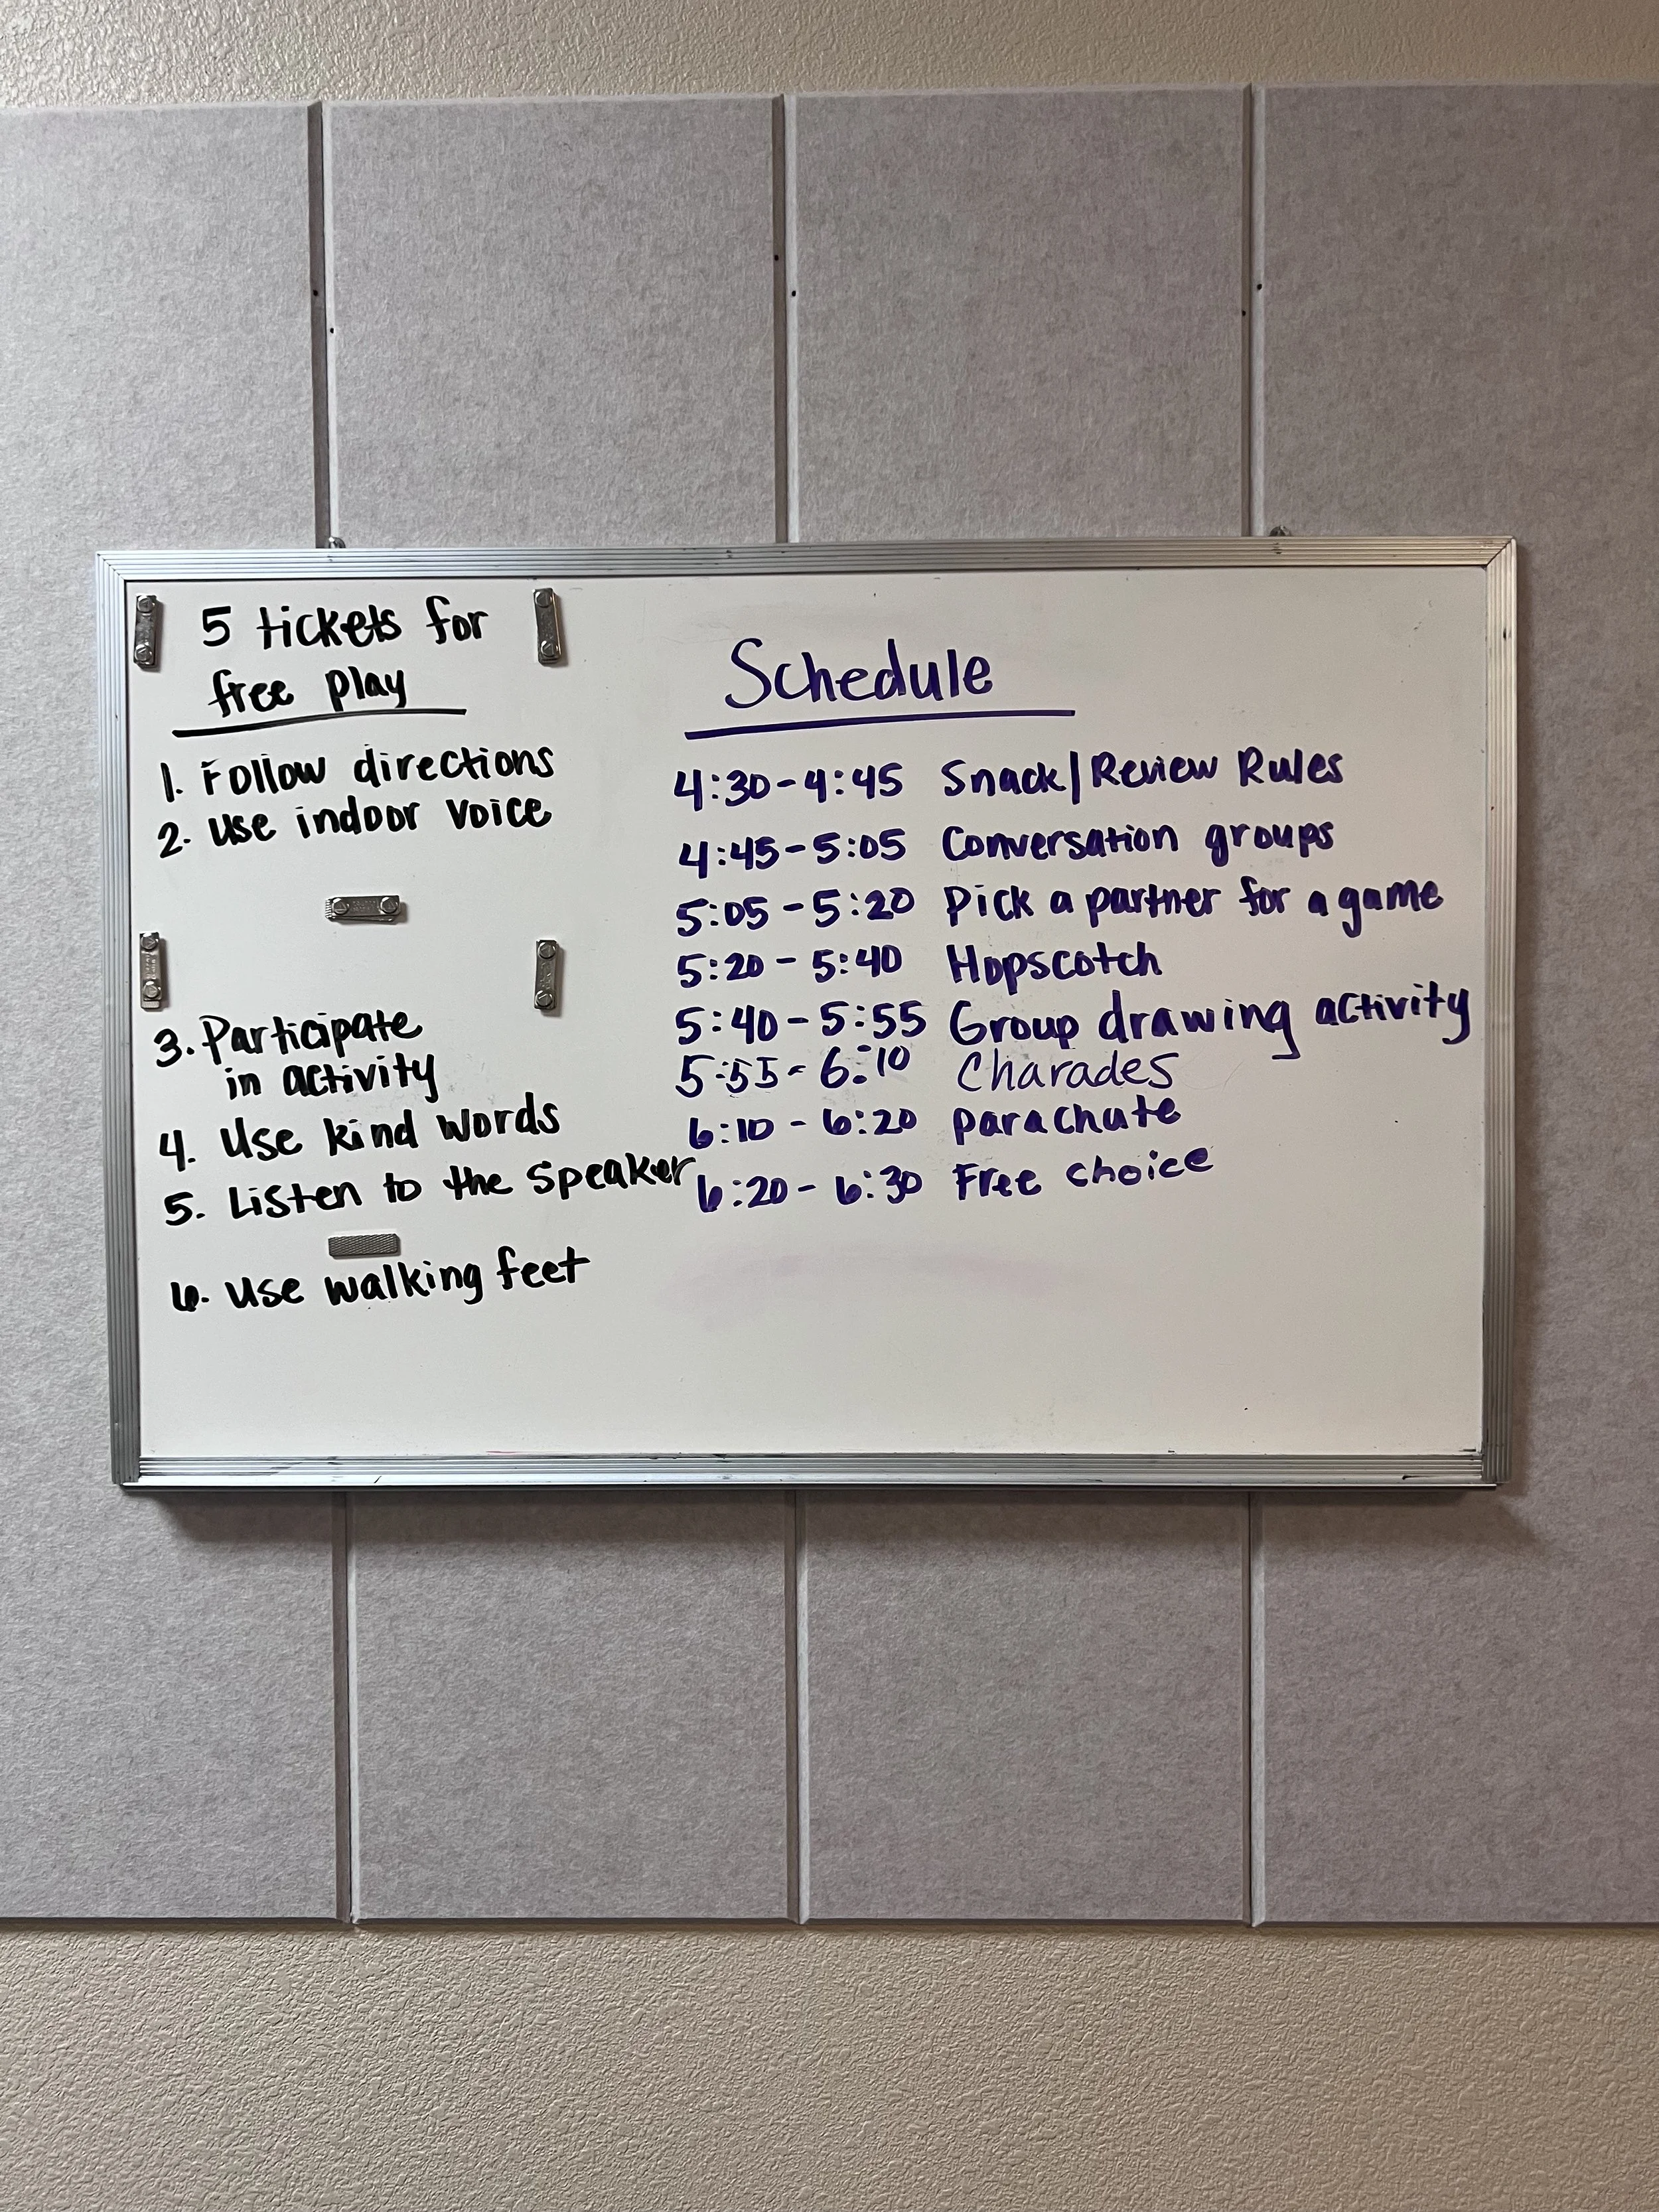 5 tickets for
free play
1. Follow directions
2. Use indoor voice
3. Participate
in activity
4. Use kind words
5. Listen to the speaker
6. Use walking feet
Schedule
4:30-4:45 Snack/Review Rules
4:45-5:05 Conversation groups
5:05-5:20 Pick a partner for a game
5:20-5:40 Hopscotch
5:40-5:55 Group drawing activity
5:55-6:10 Charades
6:10-6:20 parachute
6:20-6:30 Free choice